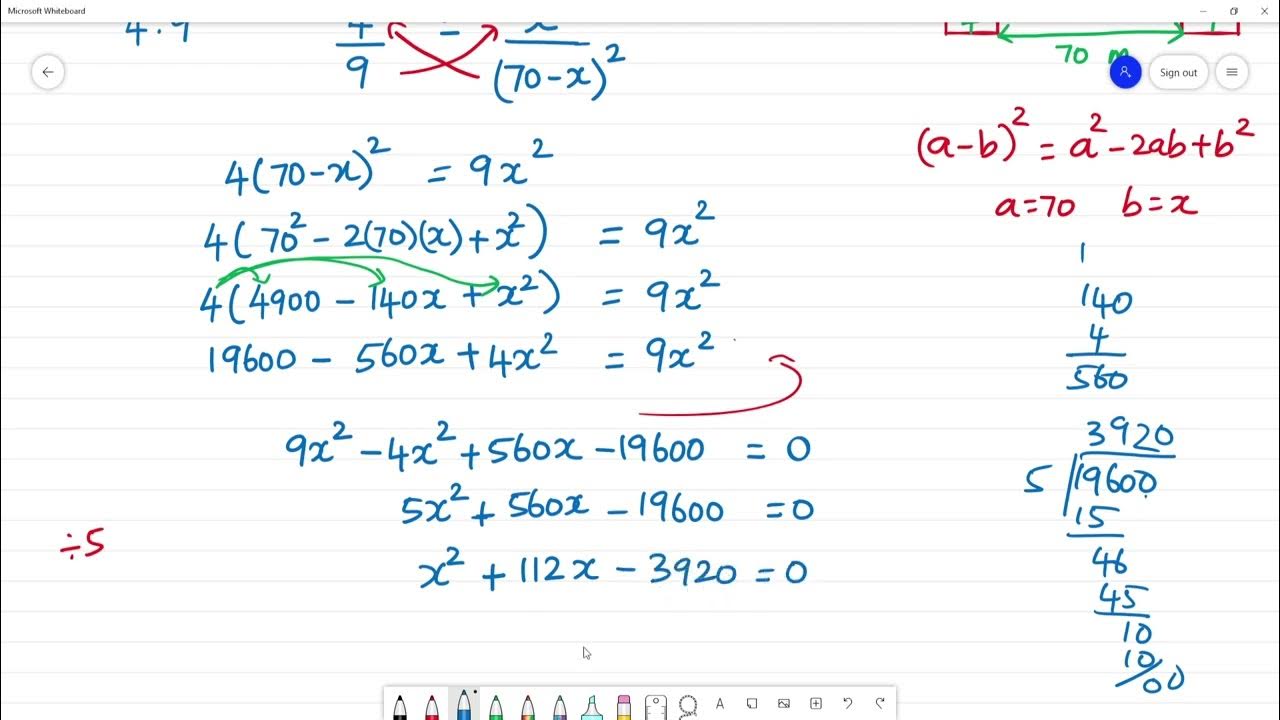 Microsoft Whiteboard
4 . 9
4/9 = x/(70-x)²
70 m
Sign out
(a-b)² = a² - 2ab + b²
a=70 b=x
4(70-x)² = 9x²
4(70² - 2(70)(x) + x²) = 9x²
4(4900 - 140x + x²) = 9x²
19600 - 560x + 4x² = 9x²
1
140
4
560
9x² - 4x² + 560x - 19600 = 0
5x² + 560x - 19600 = 0
÷5
x² + 112x - 3920 = 0
3920
5 19600
15
46
45
10
10
00
A